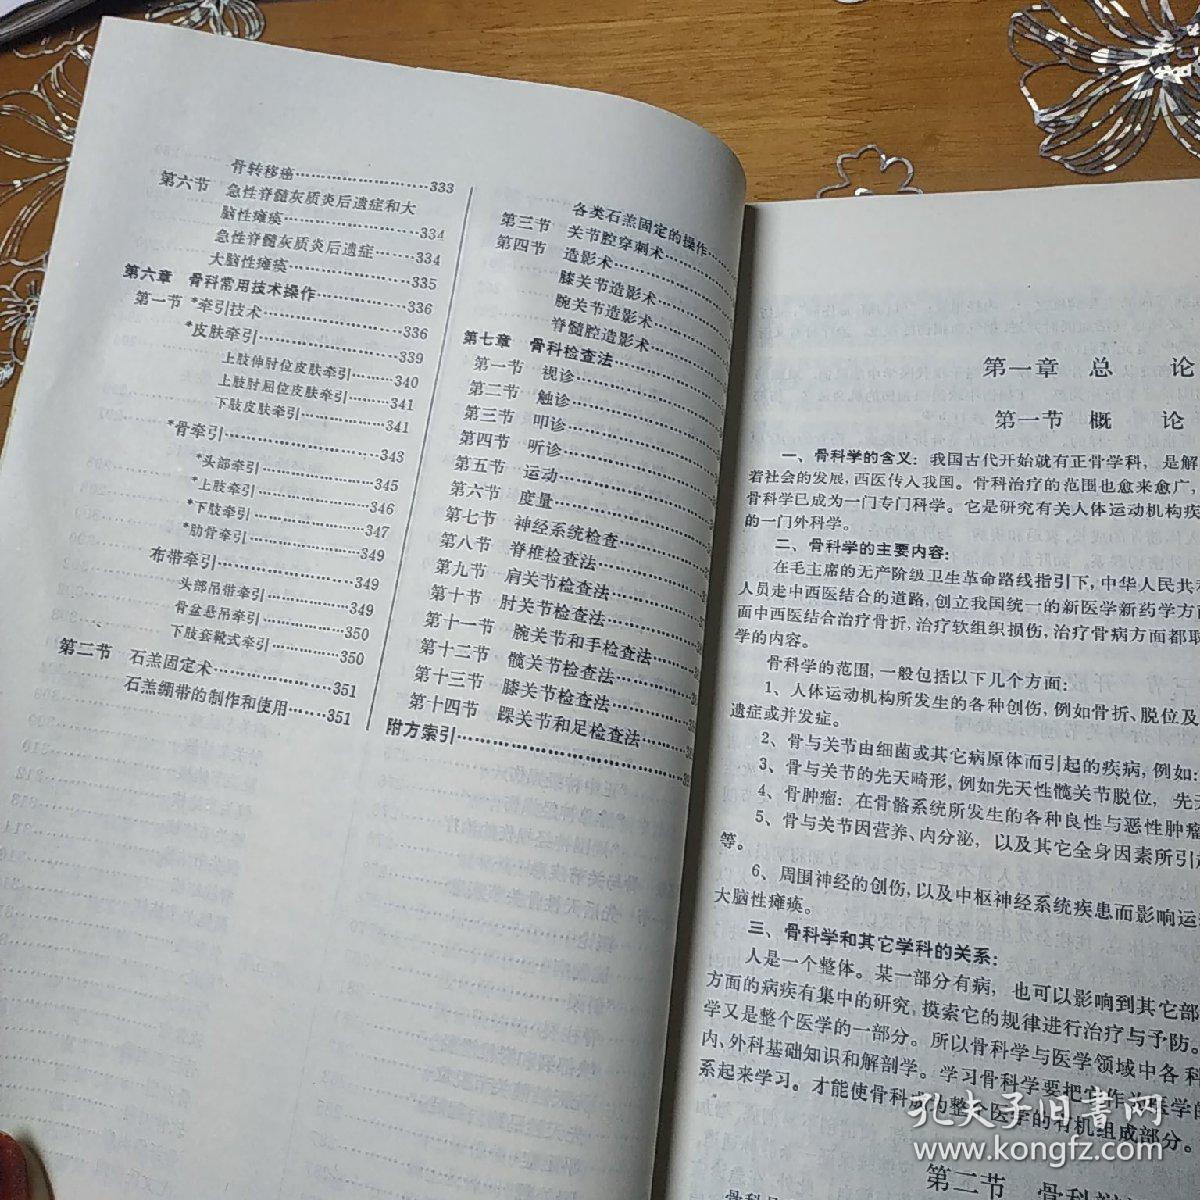 骨转移癌……………………333
第六节 急性脊髓灰质炎后遗症和大
脑性瘫痪……………………334
急性脊髓灰质炎后遗症……334
大脑性瘫痪…………………335
第六章 骨科常用技术操作……………336
第一节 *牵引技术……………………336
*皮肤牵引……………………339
上肢伸肘位皮肤牵引………340
上肢肘屈位皮肤牵引………341
下肢皮肤牵引………………341
*骨牵引………………………343
*头部牵引……………………345
*上肢牵引……………………346
*下肢牵引……………………347
*肋骨牵引……………………349
布带牵引……………………349
头部吊带牵引………………349
骨盆悬吊牵引………………350
下肢套靴式牵引……………350
第二节 石羔固定术……………………351
石羔绷带的制作和使用……351
各类石羔固定的操作
第三节 关节腔穿刺术
第四节 造影术
膝关节造影术
腕关节造影术
脊髓腔造影术
第七章 骨科检查法
第一节 视诊
第二节 触诊
第三节 叩诊
第四节 听诊
第五节 运动
第六节 度量
第七节 神经系统检查
第八节 脊椎检查法
第九节 肩关节检查法
第十节 肘关节检查法
第十一节 腕关节和手检查法
第十二节 髋关节检查法
第十三节 膝关节检查法
第十四节 踝关节和足检查法
附方索引
第一章 总 论
第一节 概 论
一、骨科学的含义：我国古代开始就有正骨学科，是解
着社会的发展，西医传入我国。骨科治疗的范围也愈来愈广，
骨科学已成为一门专门科学。它是研究有关人体运动机构疾
的一门外科学。
二、骨科学的主要内容：
在毛主席的无产阶级卫生革命路线指引下，中华人民共
人员走中西医结合的道路，创立我国统一的新医学新药学方
面中西医结合治疗骨折，治疗软组织损伤，治疗骨病方面都取
学的内容。
骨科学的范围，一般包括以下几个方面：
1、人体运动机构所发生的各种创伤，例如骨折、脱位及
遗症或并发症。
2、骨与关节由细菌或其它病原体而引起的疾病，例如：
3、骨与关节的先天畸形，例如先天性髋关节脱位，先天
4、骨肿瘤：在骨骼系统所发生的各种良性与恶性肿瘤
5、骨与关节因营养、内分泌，以及其它全身因素所引
等。
6、周围神经的创伤，以及中枢神经系统疾患而影响运
大脑性瘫痪。
三、骨科学和其它学科的关系：
人是一个整体。某一部分有病，也可以影响到其它部
方面的病疾有集中的研究，摸索它的规律进行治疗与予防。
学又是整个医学的一部分。所以骨科学与医学领域中各科
内、外科基础知识和解剖学。学习骨科学要把它作为医学的
系起来学习。才能使骨科成为整个医学的有机组成部分。
第二节 骨科
孔夫子旧书网
www.kongfz.com